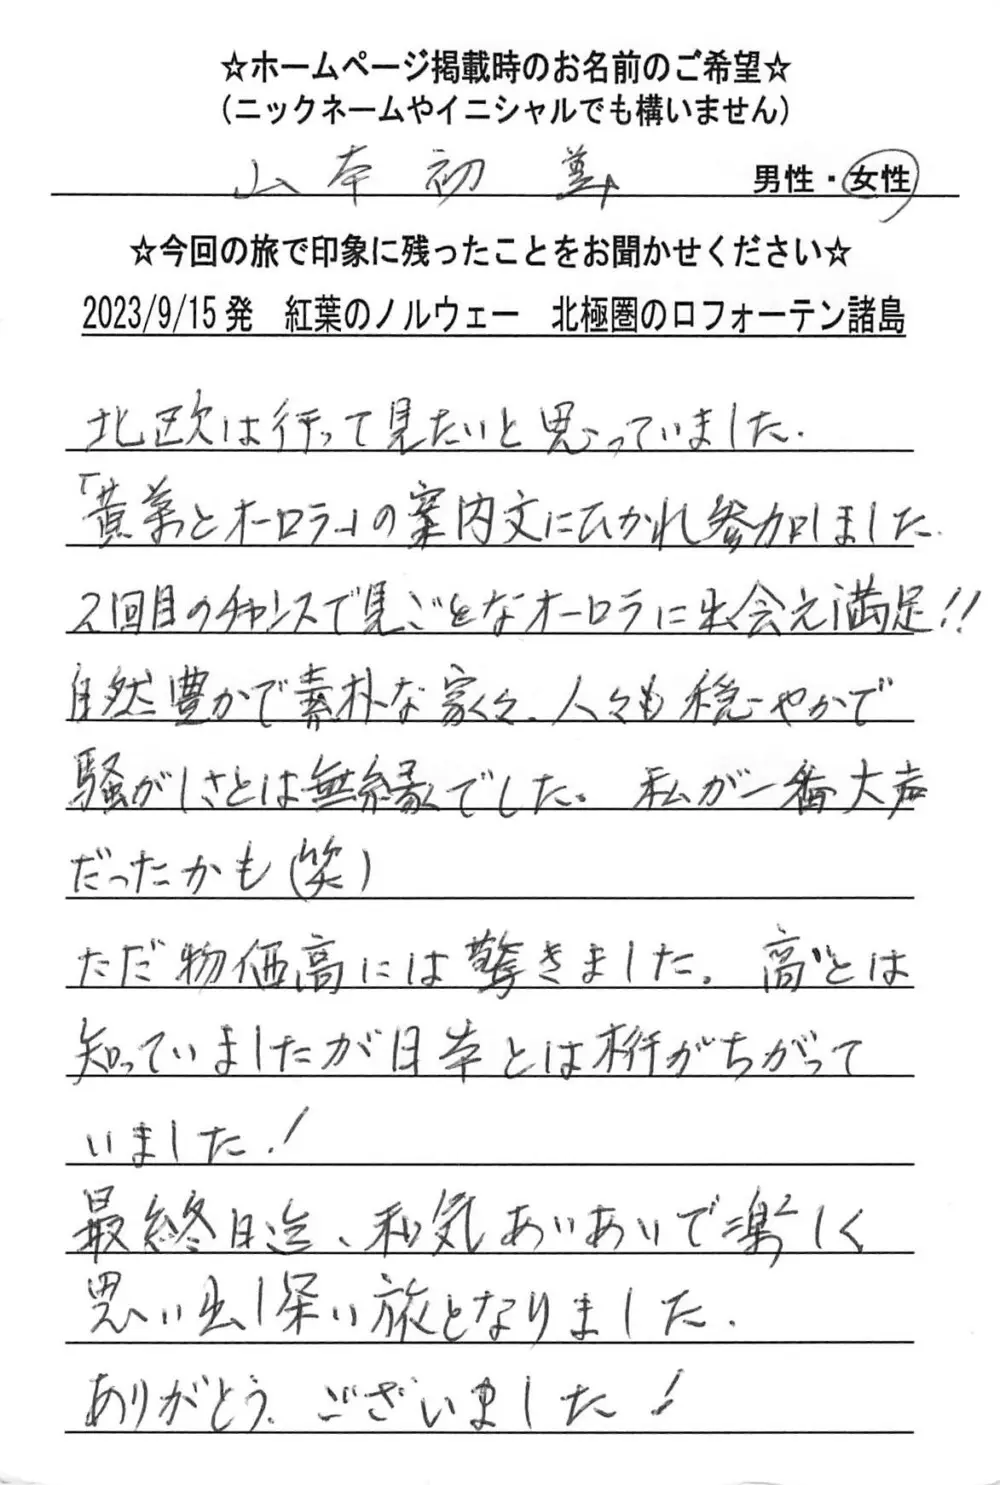 ☆ホームページ掲載時のお名前のご希望☆
(ニックネームやイニシャルでも構いません)
山本初 男性・女性
☆今回の旅で印象に残ったことをお聞かせください☆
2023/9/15発 紅葉のノルウェー 北極圏のロフォーテン諸島
北欧は行って見たいと思っていました.
「黄葉とオーロラ」の案内文にひかれ参加しました.
2回目のチャンスで見ごとなオーロラに出会え満足!!
自然豊かで素朴な家々、人々も穏やかで
騒がしさとは無縁でした。私が一番大声
だったかも(笑)
ただ物価高には驚きました。高いとは
知っていましたが日本とは桁がちがって
いました!
最終日迄、和気あいあいで楽しく
思い出深い旅となりました.
ありがとうございました!